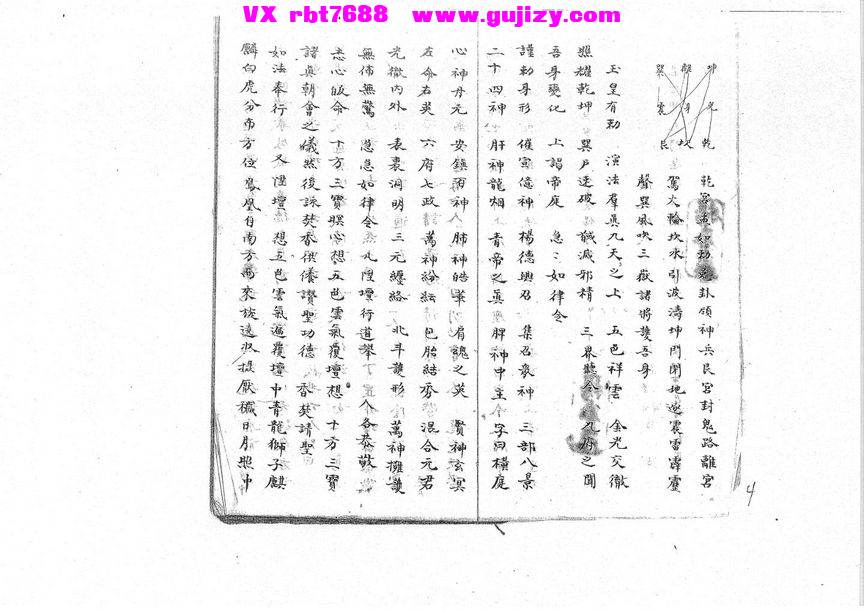 VX rbt7688 www.gujizy.com
坤 離 巽
兌 身 震
乾 坎 艮
乾宮 如 兌卦領神兵艮宮封鬼路離宮
駕火輪坎水引波濤坤門閉地 震雷霹靂
聲巽風吹三嶽諸將護吾身
玉皇有勅 演法羣真九天之上 五色祥雲 金光交徹
照耀乾坤 巽戶速破 馘滅邪精 三界聽令 九府之聞
吾身變化 上謁帝庭 急〻如律令
謹勅身形 催宣億神 楊德興召 集召衆神 三部八景
二十四神 肝神龍烟 青帝之真 脾神中主 字曰橫庭
心神丹元 安鎮 神 肺神皓華 眉魂之英 腎神玄冥
左命右英 六府七政 萬神紛紜 包胎結 混合元君
光徹內外 表裏洞明 三元纏絡 北斗護形 萬神擁護
無怖無驚 急急如律令 凡陞壇行道舉 人各恭敬
志心皈命 十方三寶 心想五色雲氣覆壇想 十方三寶
諸真朝會之儀然後詠焚香供養讚聖功德 香焚請聖
如法奉行 又陞壇 想五色雲氣 覆壇中青龍獅子麒
麟白虎分布方位鳳凰自南方而來 日月照中
4